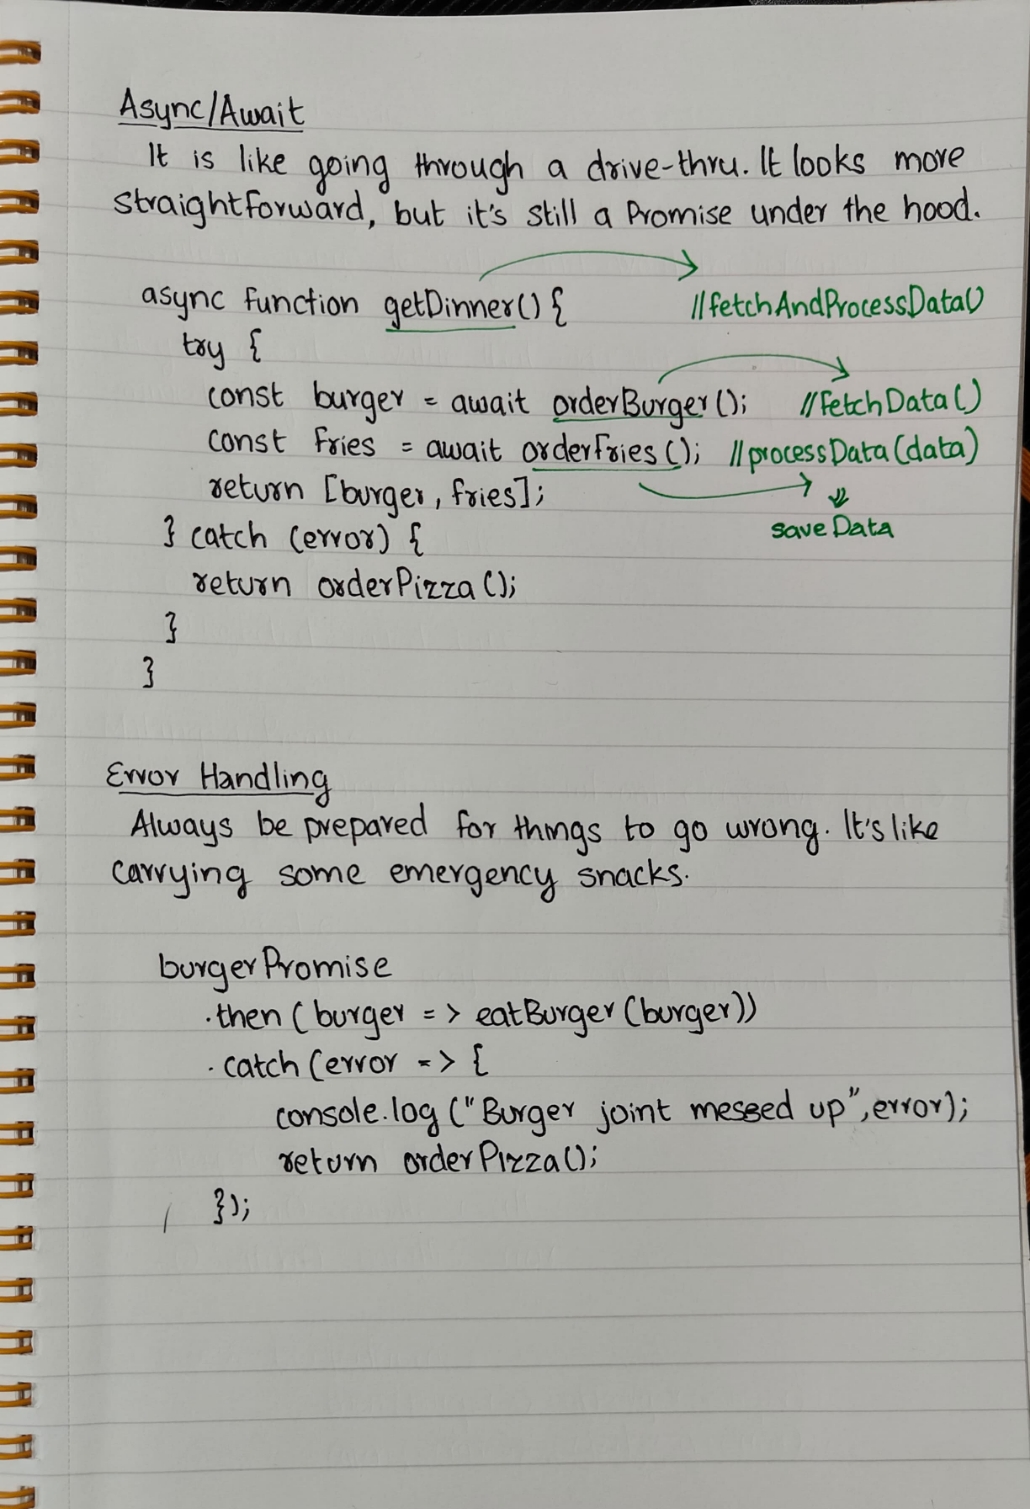 Async/Await
It is like going through a drive-thru. It looks more
straightforward, but it's still a Promise under the hood.
async function getDinner() { //fetchAndProcessData()
try {
const burger = await orderBurger(); //fetchData()
const fries = await orderfries(); //processData(data)
return [burger, fries];
saveData
} catch (error) {
return orderPizza();
}
}
Error Handling
Always be prepared for things to go wrong. It's like
carrying some emergency snacks.
burgerPromise
.then (burger => eatBurger (burger))
.catch (error => {
console.log ("Burger joint messed up", error);
return orderPizza();
});